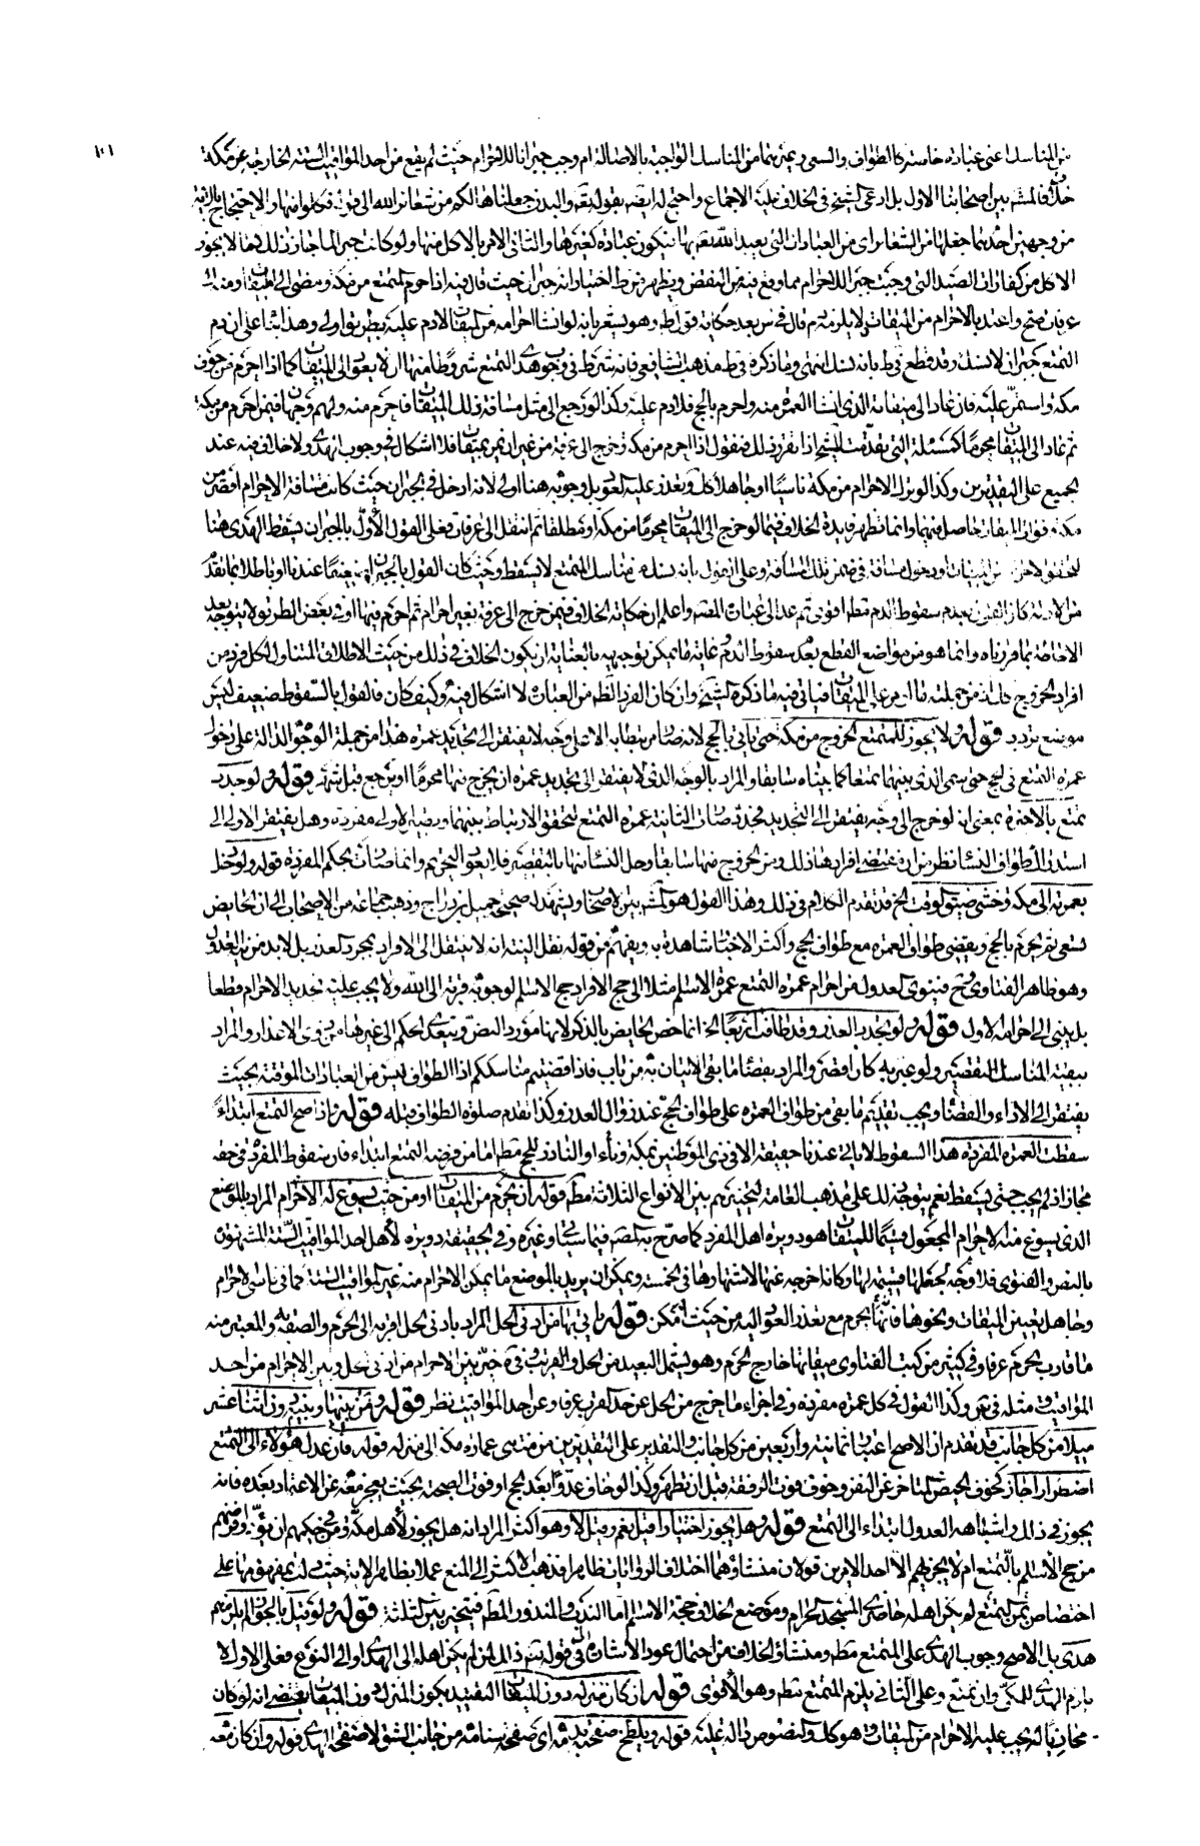 ١٠١
من المناسك اعنى عبادة خاصة كالطواف والسعى وغيرهما من المناسك الواجبة بالاصالة ام وجب جبرانا للاحرام حيث لم يقع من احد المواقيت الستة الخارجة عن مكة
خلاف فالمشهور بين اصحابنا الاول بل ادعى الشيخ فى الخلاف عليه الاجماع واحتج له ايضا بقوله تعالى والبدن جعلناها لكم من شعائر الله الى قوله فكلوا منها والاحتجاج بالاية
من وجهين احدهما جعلها من الشعائر اى من العبادات التى يعبد الله تعالى بها فيكون عبادة كغيرها والثانى الامر بالاكل منها ولو كانت جبرا لما جاز ذلك كما لا يجوز
الاكل من كفارات الصيد التى وجبت جبرا للاحرام مما وقع فيه من النقض ويظهر من ط اختيار انه جبران حيث قال فيه اذا احرم المتمتع من مكة ومضى الى الميقات ومنه الى
عرفات صح واعتد بالاحرام من الميقات ولا يلزمه دم قال فى س بعد حكاية قول ط وهو يشعر بانه لو انشا احرامه من الميقات لا دم عليه بطريق اولى وهذا بناء على ان دم
التمتع جبران لا نسك وقد قطع فى ط بانه نسك انتهى وما ذكره فى ط مذهب الشافعى فانه شرط فى وجوب هدى التمتع شروطا منها ان لا يعود الى الميقات كما اذا احرم من جوف
مكة واستمر عليه فان عاد الى ميقاته الذى انشا العمرة منه واحرم بالحج فلا دم عليه وكذا لو رجع الى مثل مسافة ذلك الميقات فاحرم منه ولهم وجهان فيمن احرم من مكة
ثم عاد الى الميقات محرما كمسئلة التى تقدمت للشيخ اذا تقرر ذلك فنقول اذا احرم من مكة وخرج الى عرفة من غير ان يمر بميقات فلا اشكال فى وجوب الهدى ولا خلاف فيه عند
الجميع على التقديرين وكذا لو ترك الاحرام من مكة ناسيا او جاهلا كل وتعذر عليه العود بل وجوبه هنا اولى لانه ادخل فى الجبران حيث كانت مسافة الاحرام اقصر من
مكة فوات الميقات حاصل فيهما وانما تظهر فايدة الخلاف فيما لو خرج الى الميقات محرما من مكة او مطلقا ثم انتقل الى عرفات فعلى القول الاول بالجبران يسقط الهدى هنا
لتحقق الاحرام من الميقات ودخول مسافته فى ضمن تلك المسافة وعلى القول بانه نسك من مناسك التمتع لا يسقط وحيث كان القول بالجبران ضعيفا عندنا او باطلا لما تقدم
من الادلة كان القول بعدم سقوط الدم مطلقا اقوى ثم عد الى عبارة المصنف واعلم ان حكاية الخلاف فيمن خرج الى عرفة بغير احرام ثم احرم فيها او فى بعض الطريق لا يتوجه بعد
الاحاطة بما قررناه وانما هو من مواضع القطع بعدم سقوط الدم وغاية ما يمكن توجيهه بالعناية ان يكون الخلاف فى ذلك من حيث الاطلاق المتناول لكل فرد من
افراد الخروج وان من جملته ما لو مر على الميقات فياتى فيه ما ذكره الشيخ وان كان الفرد الظاهر من العبارة لا اشكال فيه وكيف كان فالقول بالسقوط ضعيف ليس
موضع تردد قوله ولا يجوز للمتمتع الخروج من مكة حتى ياتى بالحج لانه صار مرتبطا به الا على وجه لا يفتقر الى تجديد عمرة هذا من جملة الوجوه الدالة على دخول
عمرة التمتع فى الحج حتى سمى الذى بينهما تمتعا كما بيناه سابقا والمراد بالوجه الذى لا يفتقر الى تجديد عمرة ان يخرج منها محرما او يرجع قبل شهر قوله ولو جدد
تمتع بالاخيرة بمعنى انه لو خرج الى وجه يفتقر الى التجديد فجدد صارت الثانية عمرة التمتع لتحقق الارتباط بينهما وبقيت الاولى مفردة وهل يفتقر الاولى الى
استدراك طواف النساء نظر من ان مقتضى افرادها ذلك ومن الخروج منها سابقا وحل النساء منها بالتقصير فلا يعود التحريم وانما صارت بحكم المفردة قوله ولو دخل
بعمرته الى مكة وخشى ضيق الوقت الخ قد تقدم الكلام فى ذلك وهذا القول هو المشهور بين الاصحاب ويشهد له صحيحة جميل بن دراج وذهب جماعة من الاصحاب الى ان الحايض
تسعى ثم تحرم بالحج وتقضى طواف العمرة مع طواف الحج واكثر الاخبار شاهدة به ويفهم من قوله نقل النية انه لا ينتقل الى الافراد بمجرد العذر بل لا بد من نية العدول
وهو ظاهر الفتاوى فينوى العدول من احرام عمرة التمتع عمرة الاسلام مثلا الى حج الافراد حج الاسلام لوجوبه قربة الى الله ولا يجب عليه تجديد الاحرام قطعا
بل يبنى على احرامه الاول قوله ولو تجدد العذر وقد طافت اربعا الخ انما خص الحايض بالذكر لانها مورد النص ويتعدى الحكم الى غيرها من ذوى الاعذار والمراد
ببقية المناسك التقصير ولو عبر به كان اقصر والمراد بقضاء ما بقى الاتيان به من باب فاذا قضيتم مناسككم اذ الطواف ليس من العبادات الموقتة بحيث
يفتقر الى الاداء والقضاء ويجب تقديم ما بقى من طواف العمرة على طواف الحج عند زوال العذر وكذا تقدم صلوة الطواف قبله قوله واذا صح التمتع ابتداء
سقطت العمرة المفردة هذا السقوط لا ياتى عندنا حقيقة الا فى ذى المؤطنين بمكة وناء او الناذر للحج مطلقا اما من فرضه التمتع ابتداء فان سقوط المفرد فى حقه
مجاز اذ لم يجب حتى يسقط نعم يتوجه ذلك على مذهب العامة لتخييرهم بين الانواع الثلاثة مطلقا قوله ان يحرم من الميقات او من حيث يسوغ له الاحرام المراد بالموضع
الذى يسوغ منه الاحرام المجعول قسيما للميقات هو دويرة اهل المفرد كما صرح به المصنف فيما سياتى وغيره وفى الحقيقة دويرة الاهل احد المواقيت الستة المشهورة
بالنص والفتوى فلا وجه لجعلها قسيمة لها وكانه اخرجه عنها لاشتهارها فى الخمسة ويمكن ان يريد بالموضع ما يمكن الاحرام منه غير المواقيت الستة كما فى ناسى الاحرام
وجاهل تعيين الميقات ونحوها فانه يحرم مع تعذر العود اليه من حيث امكن قوله ياتى بها من ادنى الحل المراد بادنى الحل اقربه الى الحرم والصقه به والمعتبر منه
ما قارب الحرم عرفا وفى كثير من كتب الفتاوى ميقاتها خارج الحرم وهو يشمل البعيد من الحل والقريب وفى د خير بين الاحرام من ادنى الحل وبين الاحرام من احد
المواقيت ومثله فى س وكذا القول فى كل عمرة مفردة وفى اجزاء ما خرج من الحل عن حد القرب عرفا وعن احد المواقيت نظر قوله ومن بينها وبينه دون اثنا عشر
ميلا من كل جانب قد تقدم ان الاصح اعتبار ثمانية واربعين من كل جانب والتقدير على التقديرين من منتهى عمارة مكة الى منزله قوله فان عدل هؤلاء الى التمتع
اضطرارا جاز كخوف الحيض المتاخر عن النفر وخوف فوت الرفقة قبل ان تطهر وكذا لو خاف عدوا بعد الحج او فوت الصحبة بحيث يعجز معه عن الاعتمار بعده فانه
يجوز فى ذلك واشباهه العدول ابتداء الى التمتع قوله وهل يجوز اختيارا قيل نعم وقيل لا وهو اكثر المراد انه هل يجوز لاهل مكة ومن فى حكمهم ان يؤدوا فرضهم
من حج الاسلام بالتمتع ام لا يجزيهم الا احد الامرين قولان منشاؤهما اختلاف الروايات ظاهرا فذهب الاكثر الى المنع عملا بظاهر الاية حيث دلت بمفهومها على
اختصاص من تمتع لم يكن اهله حاضرى المسجد الحرام وموضع الخلاف حجة الاسلام اما الندب والمنذور المطلق فيتخير بين الثلثة قوله ولو قيل بالجواز لم يلزمهم
هدى بل الاصح وجوب الهدى على المتمتع مطلقا ومنشاؤ الخلاف من احتمال عود الاشارة فى قوله تعالى ذلك لمن لم يكن اهله الى الهدى او الى النوع فعلى الاول لا
يلزم الهدى للمكى وان تمتع وعلى الثانى يلزم المتمتع مطلقا وهو الاقوى قوله ان كان منزله دون الميقات التقييد بكون المنزل دون الميقات يقتضى انه لو كان
محاذيا له يجب عليه الاحرام من الميقات وهو كك والنصوص دالة عليه قوله ويلطخ صفحته بدمه اى صفحة سنامه من جانب الشق لا صفحة الهدى قوله وان كان معه